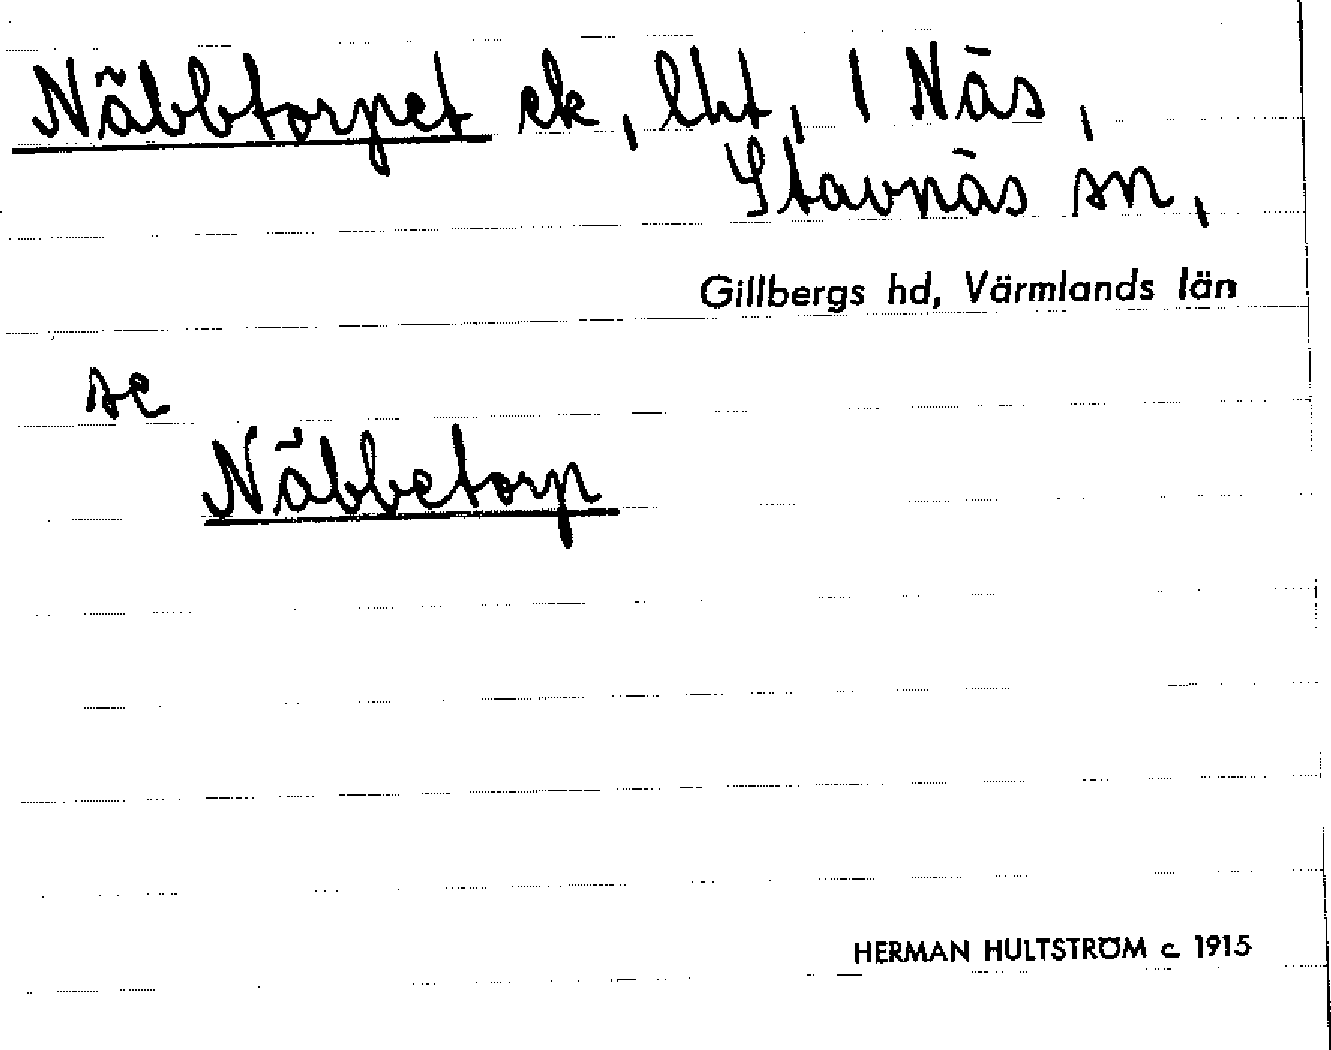 Näbbtorpet ck, lht, 1 Näs,
Stavnäs sn,
Gillbergs hd, Värmlands län
se
Näbbetorp
HERMAN HULTSTRÖM c. 1915